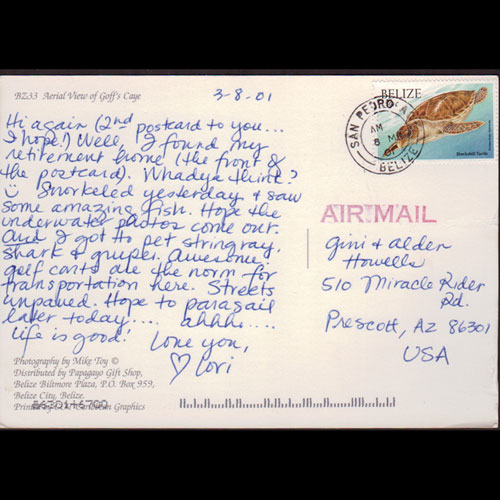 BZ33 Aerial View of Goff's Caye
3-8-01
BELIZE
SAN PEDRO
AM
8 M
01
BELIZE
Hawksbill Turtle
Hi again (2nd postcard to you...
I hope!) Well, I found my
retirement home (the front of
the postcard). Whadya think?
☺ Snorkeled yesterday & saw
some amazing fish. Hope the
underwater photos come out.
And I got to pet stringray,
shark & gruper. Awesome!
golf carts are the norm for
transportation here. Streets
unpaved. Hope to parasail
later today.... ahhhs....
life is good! Love you,
♡ Lori
AIR MAIL
Gini & Alden
Howells
510 Miracle Rider
Rd.
Prescott, AZ 86301
USA
Photography by Mike Toy ©
Distributed by Papagayo Gift Shop,
Belize Biltmore Plaza, P.O. Box 959,
Belize City, Belize.
Printed by Graphics